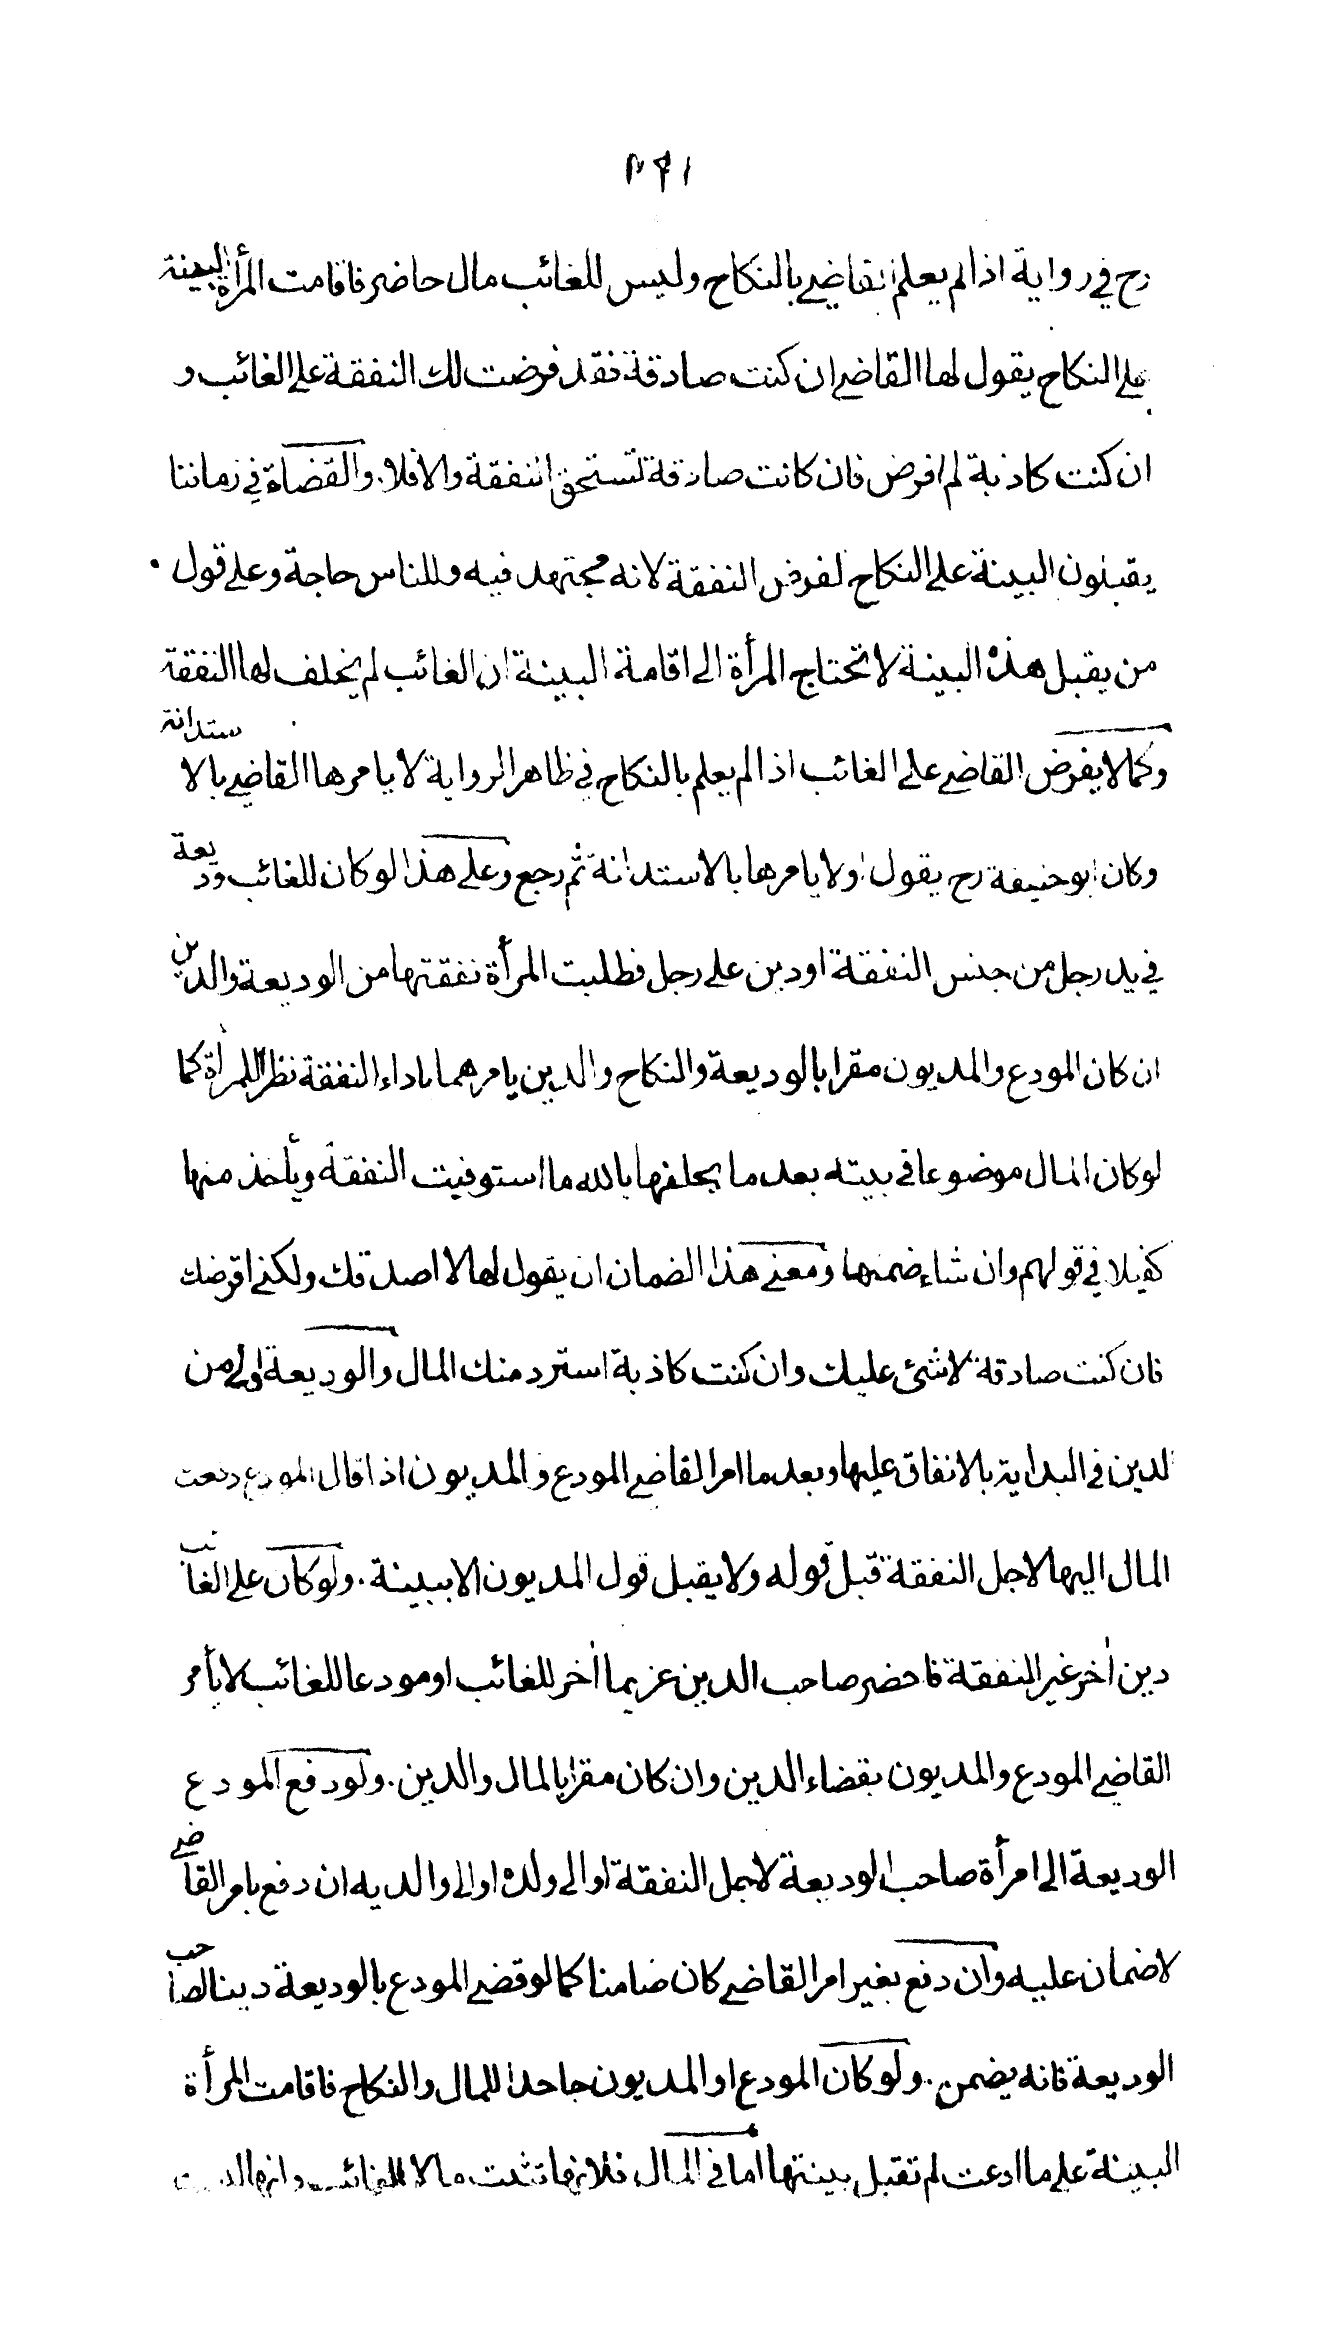 ۴۹۱
رح في رواية اذا لم يعلم القاضي بالنكاح وليس للغائب مال حاضر فاقامت المرأة البينة
على النكاح يقول لها القاضي ان كنت صادقة فقد فرضت لك النفقة على الغائب و
ان كنت كاذبة لم افرض فان كانت صادقة تستحق النفقة والا فلا. والقضاة في زماننا
يقبلون البينة على النكاح لفرض النفقة لانه مجتهد فيه وللناس حاجة وعلى قول
من يقبل هذه البينة لا تحتاج المرأة الى اقامة البينة ان الغائب لم يخلف لها النفقة
وكما لا يفرض القاضي على الغائب اذا لم يعلم بالنكاح في ظاهر الرواية لا يامرها القاضي بالاستدانة
وكان ابو حنيفة رح يقول اولا يامرها بالاستدانة ثم رجع وعلى هذا لو كان للغائب وديعة
في يد رجل من جنس النفقة او دين على رجل فطلبت المرأة نفقتها من الوديعة والدين
ان كان المودع والمديون مقرا بالوديعة والنكاح والدين يامرهما باداء النفقة نظرا للمرأة كما
لو كان المال موضوعا في بيته بعد ما يحلفها بالله ما استوفيت النفقة ويأخذ منها
كفيلا في قولهم وان شاء ضمنها ومعنى هذا الضمان ان يقول لها لا اصدقك ولكني اقرضك
فان كنت صادقة لا شئ عليك وان كنت كاذبة استرد منك المال والوديعة اولى من
لدين في البداية بالانفاق عليها وبعد ما امر القاضي المودع والمديون اذا قال المودع دفعت
المال اليها لاجل النفقة قبل قوله ولا يقبل قول المديون الا ببينة. ولو كان على الغائب
دين اخر غير النفقة فاحضر صاحب الدين غريما اخر للغائب او مودعا للغائب لا يأمر
القاضي المودع والمديون بقضاء الدين وان كان مقرا بالمال والدين. ولو دفع المودع
الوديعة الى امرأة صاحب الوديعة لاجل النفقة او الى ولده او الى والديه ان دفع بامر القاضي
لا ضمان عليه وان دفع بغير امر القاضي كان ضامنا كما لو قضى المودع بالوديعة دينا لصاحب
الوديعة فانه يضمن. ولو كان المودع او المديون جاحدا للمال والنكاح فاقامت المرأة
البينة على ما ادعت لم تقبل بينتها اما في المال فلانها تثبت مالا للغائب وانها